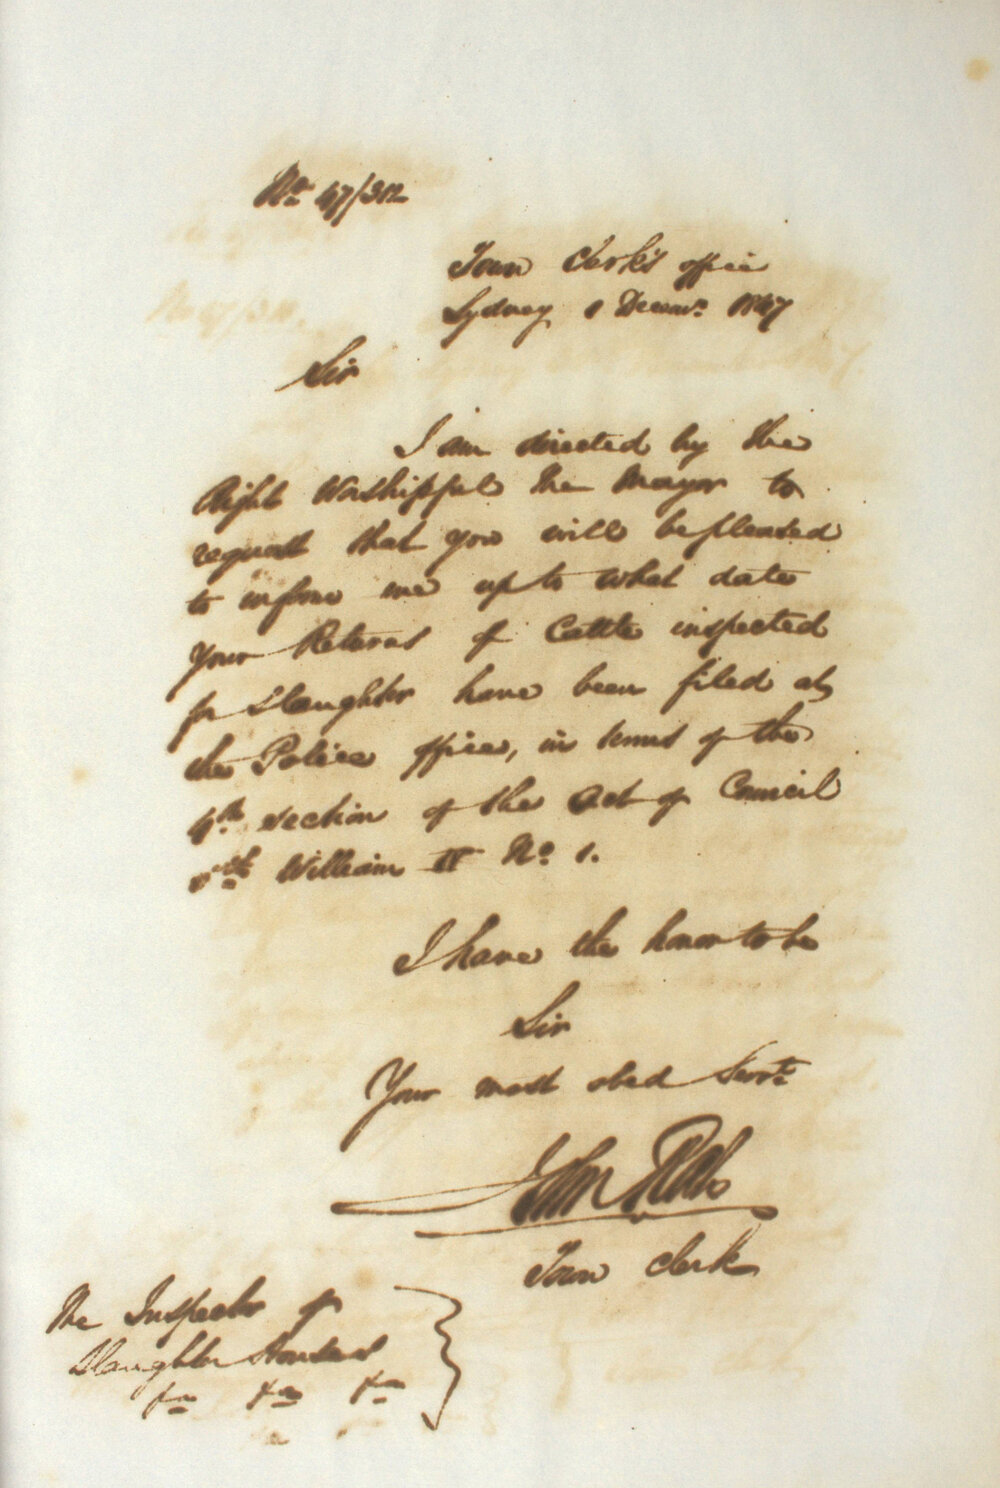 No. 47/312
Town Clerk's office
Sydney 1 Decemr. 1847
Sir
I am directed by the
Right Worshipful the Mayor to
request that you will be pleased
to inform me up to what date
Your Returns of Cattle inspected
for Slaughter have been filed at
the Police office, in terms of the
4th. section of the Act of Council
William IV No. 1.
I have the honor to be
Sir
Your most obed Servt.
John Rae
Town Clerk
The Inspector of
Slaughter Houses